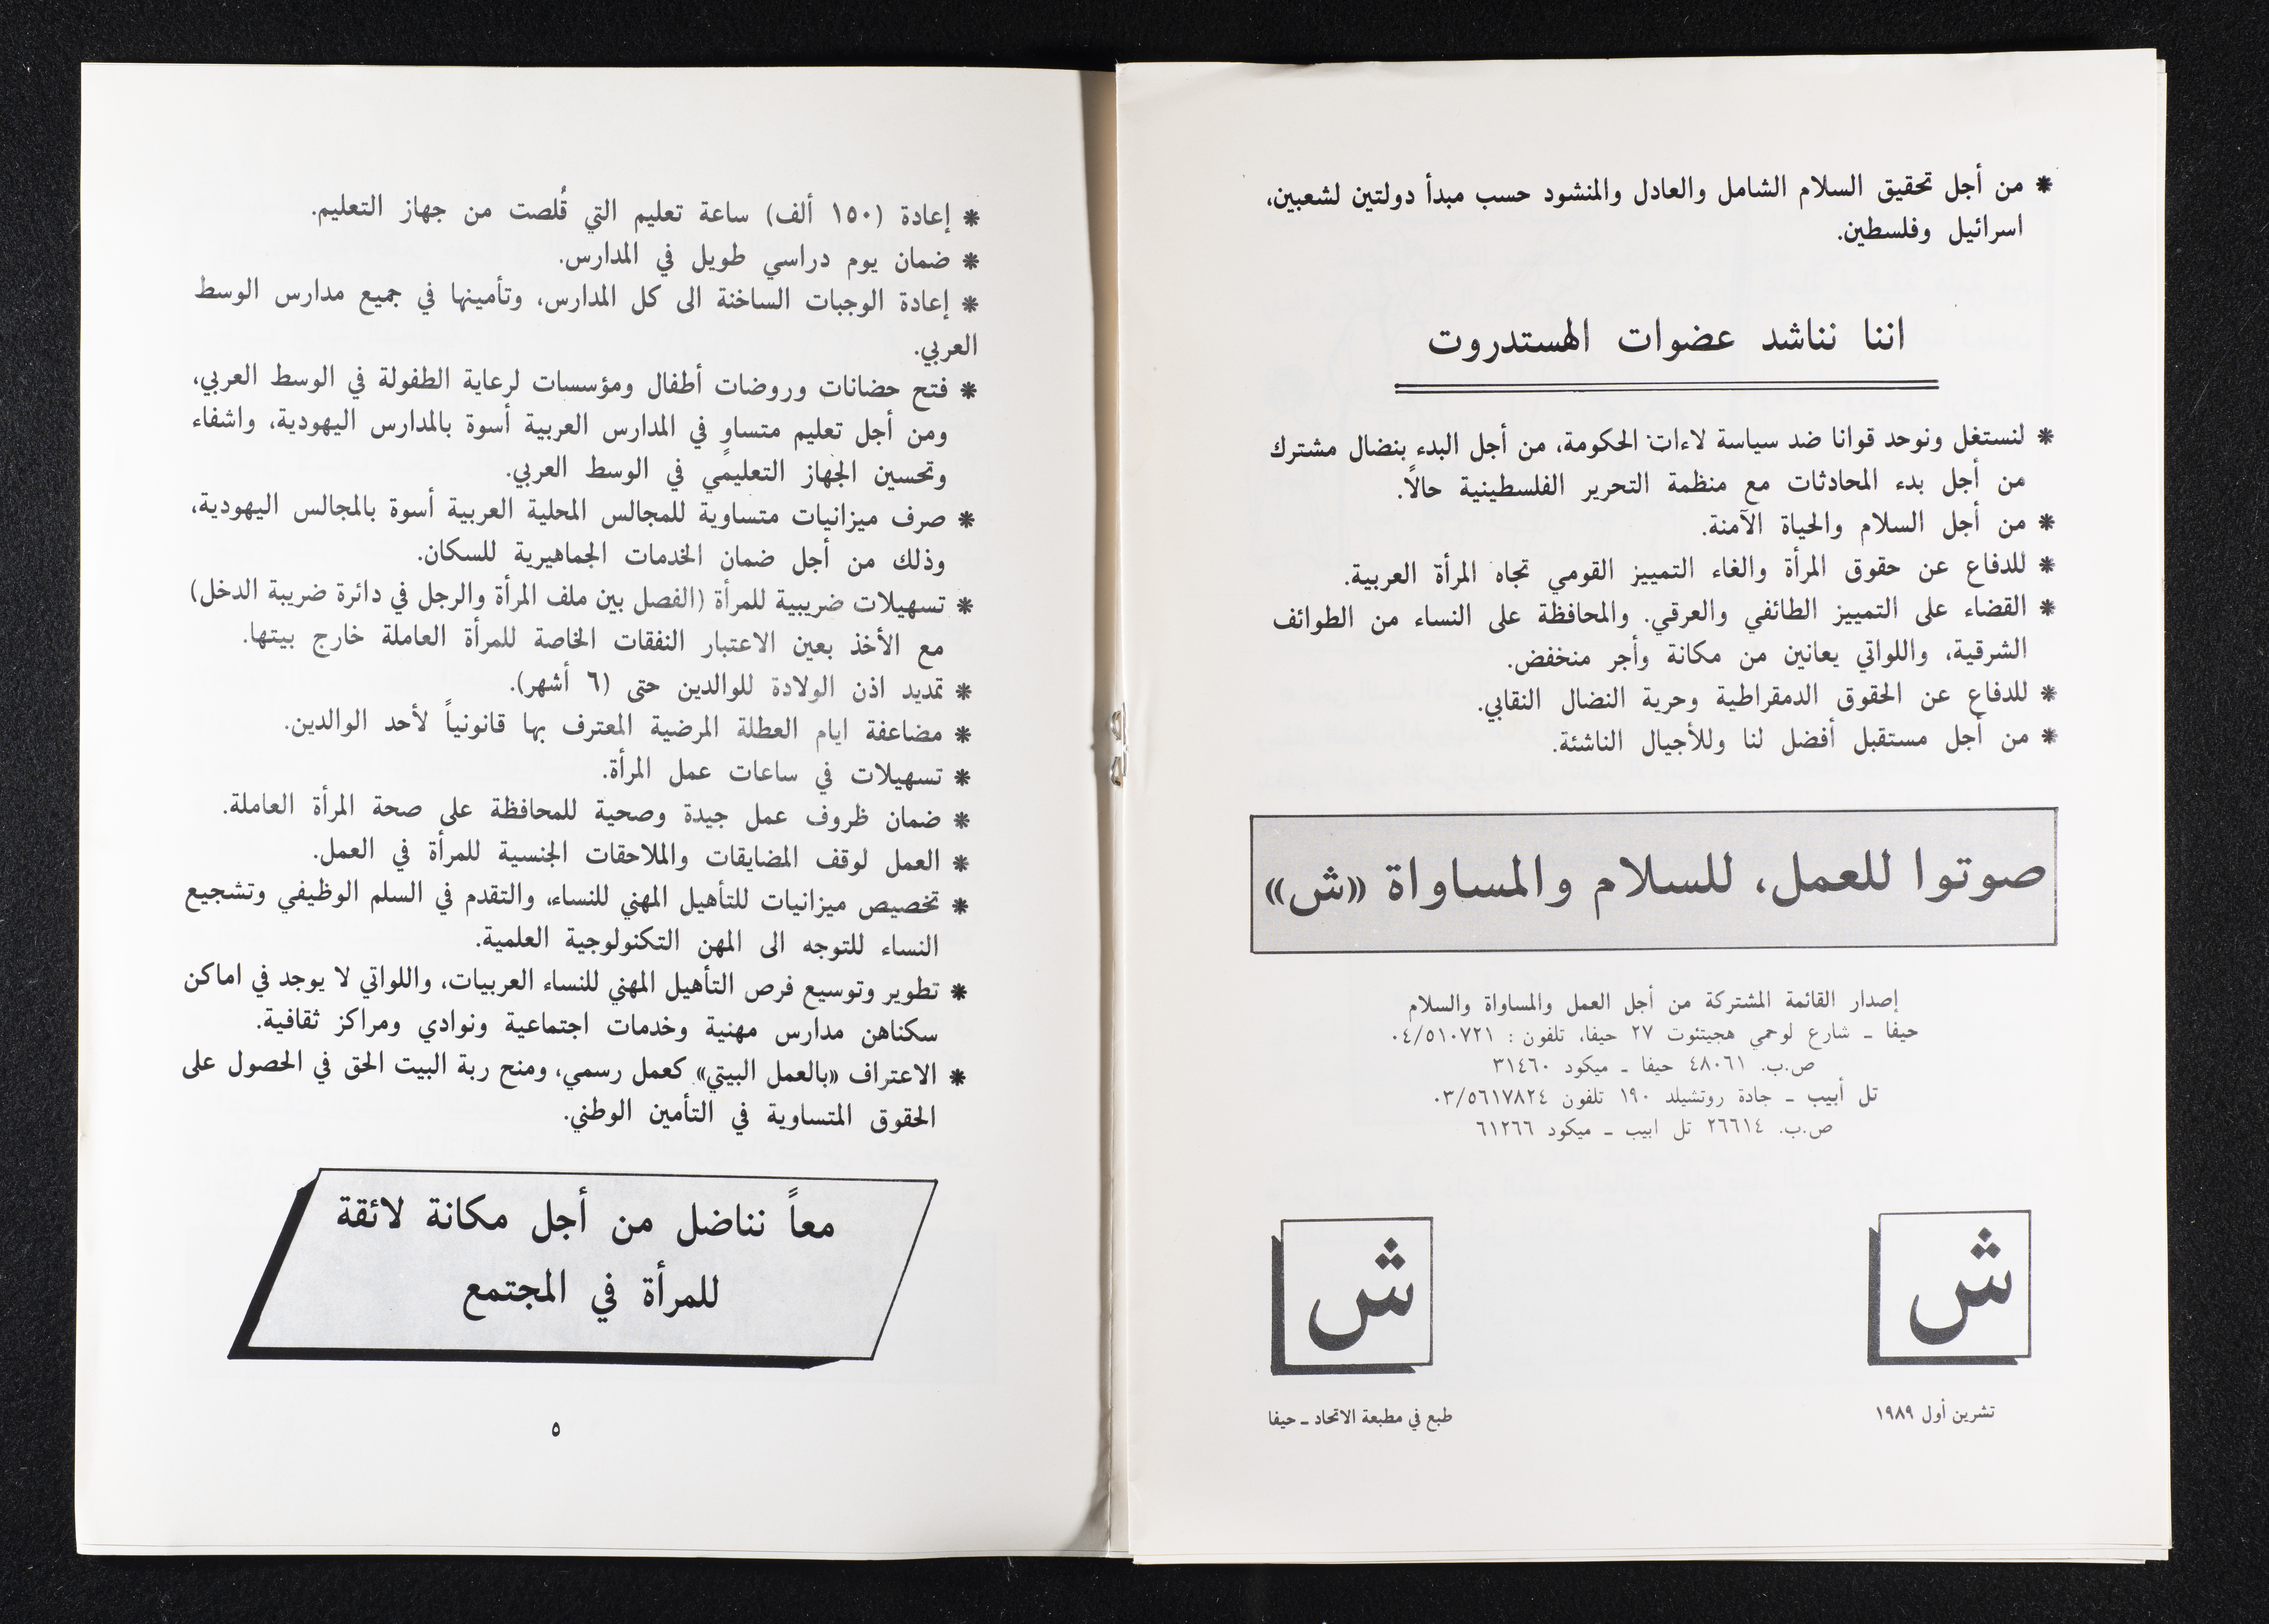 * من أجل تحقيق السلام الشامل والعادل والمنشود حسب مبدأ دولتين لشعبين،
اسرائيل وفلسطين.
اننا نناشد عضوات الهستدروت
* لنستغل ونوحد قوانا ضد سياسة لاءات الحكومة، من أجل البدء بنضال مشترك
من أجل بدء المحادثات مع منظمة التحرير الفلسطينية حالاً.
* من أجل السلام والحياة الآمنة.
* للدفاع عن حقوق المرأة والغاء التمييز القومي تجاه المرأة العربية.
* القضاء على التمييز الطائفي والعرقي. والمحافظة على النساء من الطوائف
الشرقية، واللواتي يعانين من مكانة وأجر منخفض.
* للدفاع عن الحقوق الدمقراطية وحرية النضال النقابي.
* من أجل مستقبل أفضل لنا وللأجيال الناشئة.
صوتوا للعمل، للسلام والمساواة «ش»
إصدار القائمة المشتركة من أجل العمل والمساواة والسلام
حيفا ــ شارع لوحمي هجيتئوت ٢٧ حيفا، تلفون : ٠٤/٥١٠٧٢١
ص.ب. ٤٨٠٦١ حيفا ــ ميكود ٣١٤٦٠
تل أبيب ــ جادة روتشيلد ١٩٠ تلفون ٠٣/٥٦١٧٨٢٤
ص.ب. ٢٦٦١٤ تل ابيب ــ ميكود ٦١٢٦٦
ش
ش
تشرين أول ١٩٨٩
طبع في مطبعة الاتحاد ــ حيفا
* إعادة (١٥٠ ألف) ساعة تعليم التي قُلصت من جهاز التعليم.
* ضمان يوم دراسي طويل في المدارس.
* إعادة الوجبات الساخنة الى كل المدارس، وتأمينها في جميع مدارس الوسط
العربي.
* فتح حضانات وروضات أطفال ومؤسسات لرعاية الطفولة في الوسط العربي،
ومن أجل تعليم متساوٍ في المدارس العربية أسوة بالمدارس اليهودية، واشفاء
وتحسين الجهاز التعليمي في الوسط العربي.
* صرف ميزانيات متساوية للمجالس المحلية العربية أسوة بالمجالس اليهودية،
وذلك من أجل ضمان الخدمات الجماهيرية للسكان.
* تسهيلات ضريبية للمرأة (الفصل بين ملف المرأة والرجل في دائرة ضريبة الدخل)
مع الأخذ بعين الاعتبار النفقات الخاصة للمرأة العاملة خارج بيتها.
* تمديد اذن الولادة للوالدين حتى (٦ أشهر).
* مضاعفة ايام العطلة المرضية المعترف بها قانونياً لأحد الوالدين.
* تسهيلات في ساعات عمل المرأة.
* ضمان ظروف عمل جيدة وصحية للمحافظة على صحة المرأة العاملة.
* العمل لوقف المضايقات والملاحقات الجنسية للمرأة في العمل.
* تخصيص ميزانيات للتأهيل المهني للنساء، والتقدم في السلم الوظيفي وتشجيع
النساء للتوجه الى المهن التكنولوجية العلمية.
* تطوير وتوسيع فرص التأهيل المهني للنساء العربيات، واللواتي لا يوجد في اماكن
سكناهن مدارس مهنية وخدمات اجتماعية ونوادي ومراكز ثقافية.
* الاعتراف «بالعمل البيتي» كعمل رسمي، ومنح ربة البيت الحق في الحصول على
الحقوق المتساوية في التأمين الوطني.
معاً نناضل من أجل مكانة لائقة
للمرأة في المجتمع
٥